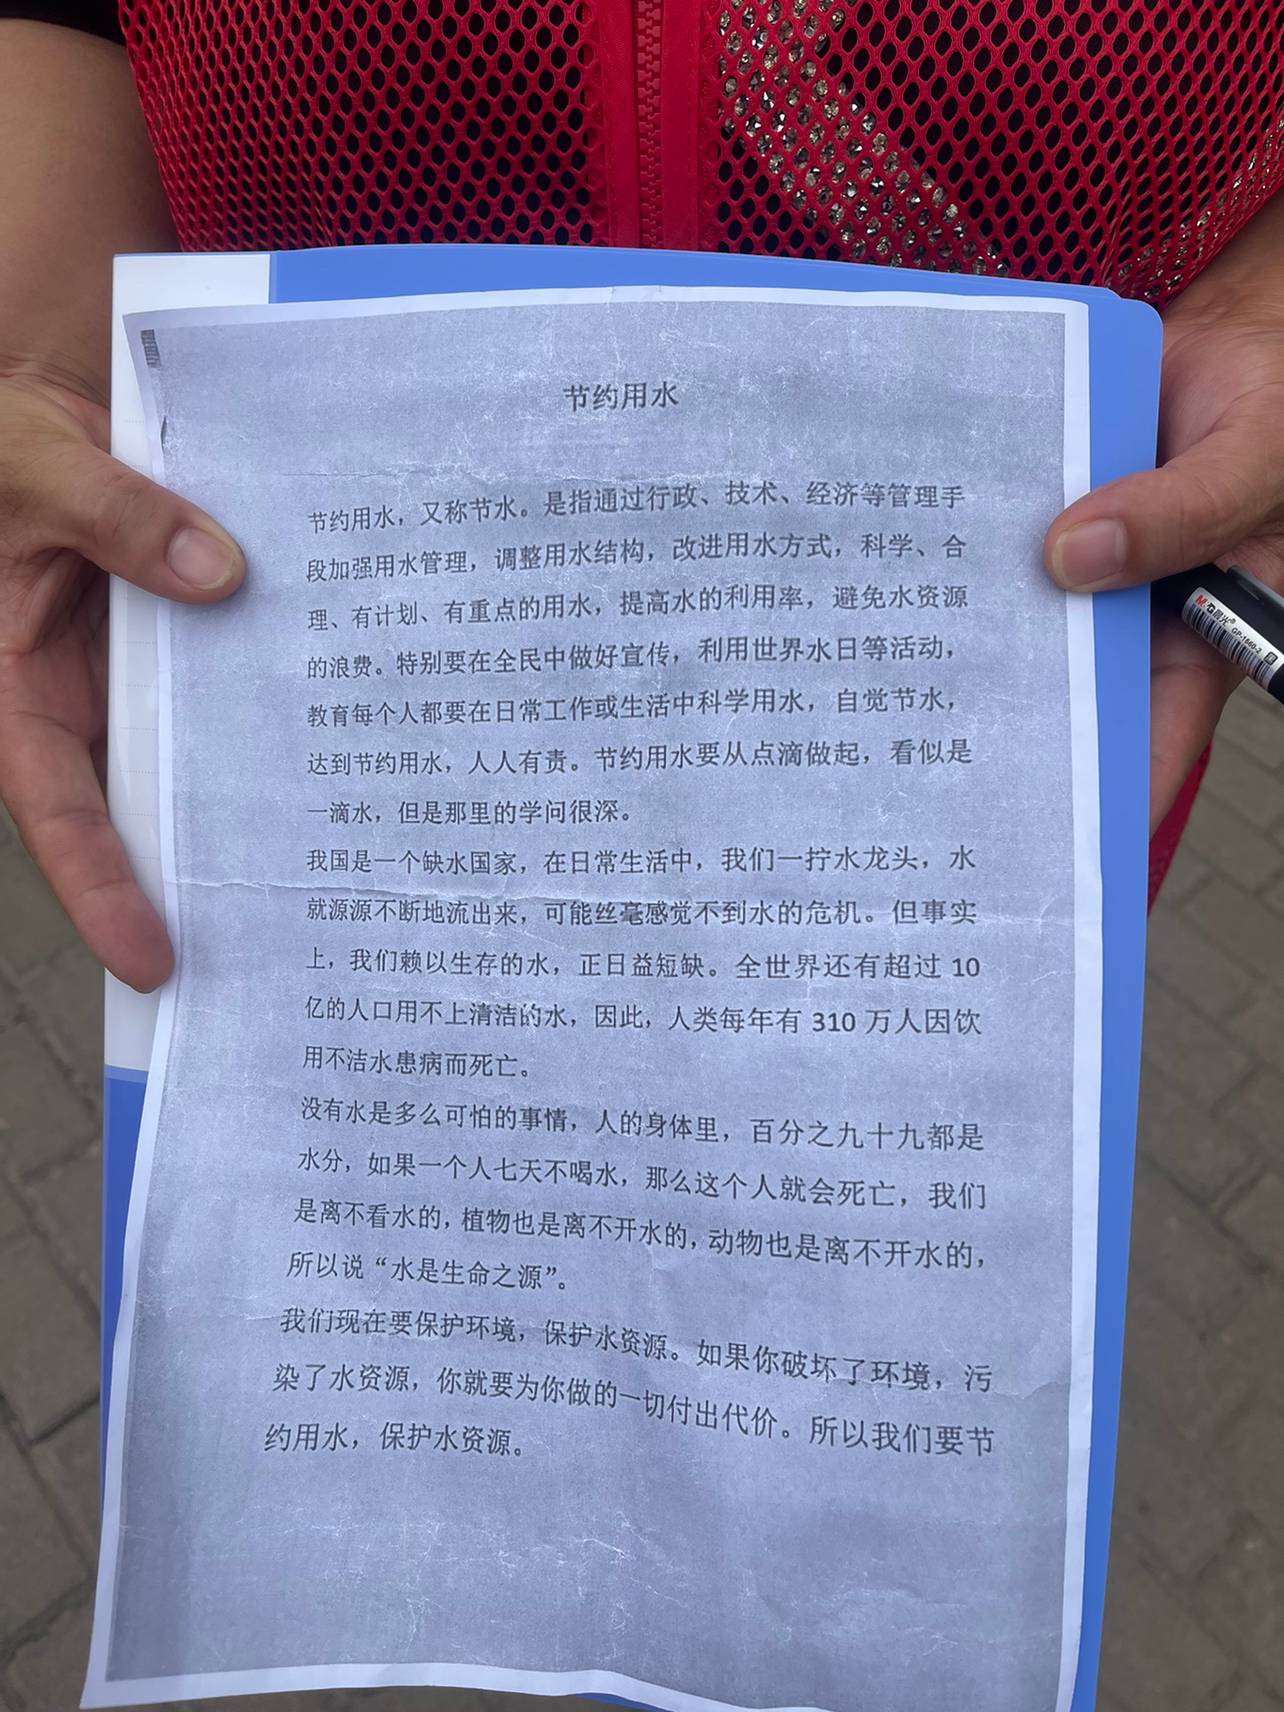 节约用水
节约用水，又称节水。是指通过行政、技术、经济等管理手
段加强用水管理，调整用水结构，改进用水方式，科学、合
理、有计划、有重点的用水，提高水的利用率，避免水资源
的浪费。特别要在全民中做好宣传，利用世界水日等活动，
教育每个人都要在日常工作或生活中科学用水，自觉节水，
达到节约用水，人人有责。节约用水要从点滴做起，看似是
一滴水，但是那里的学问很深。
我国是一个缺水国家，在日常生活中，我们一拧水龙头，水
就源源不断地流出来，可能丝毫感觉不到水的危机。但事实
上，我们赖以生存的水，正日益短缺。全世界还有超过 10
亿的人口用不上清洁的水，因此，人类每年有 310 万人因饮
用不洁水患病而死亡。
没有水是多么可怕的事情，人的身体里，百分之九十九都是
水分，如果一个人七天不喝水，那么这个人就会死亡，我们
是离不看水的，植物也是离不开水的，动物也是离不开水的，
所以说“水是生命之源”。
我们现在要保护环境，保护水资源。如果你破坏了环境，污
染了水资源，你就要为你做的一切付出代价。所以我们要节
约用水，保护水资源。
M&G晨光®